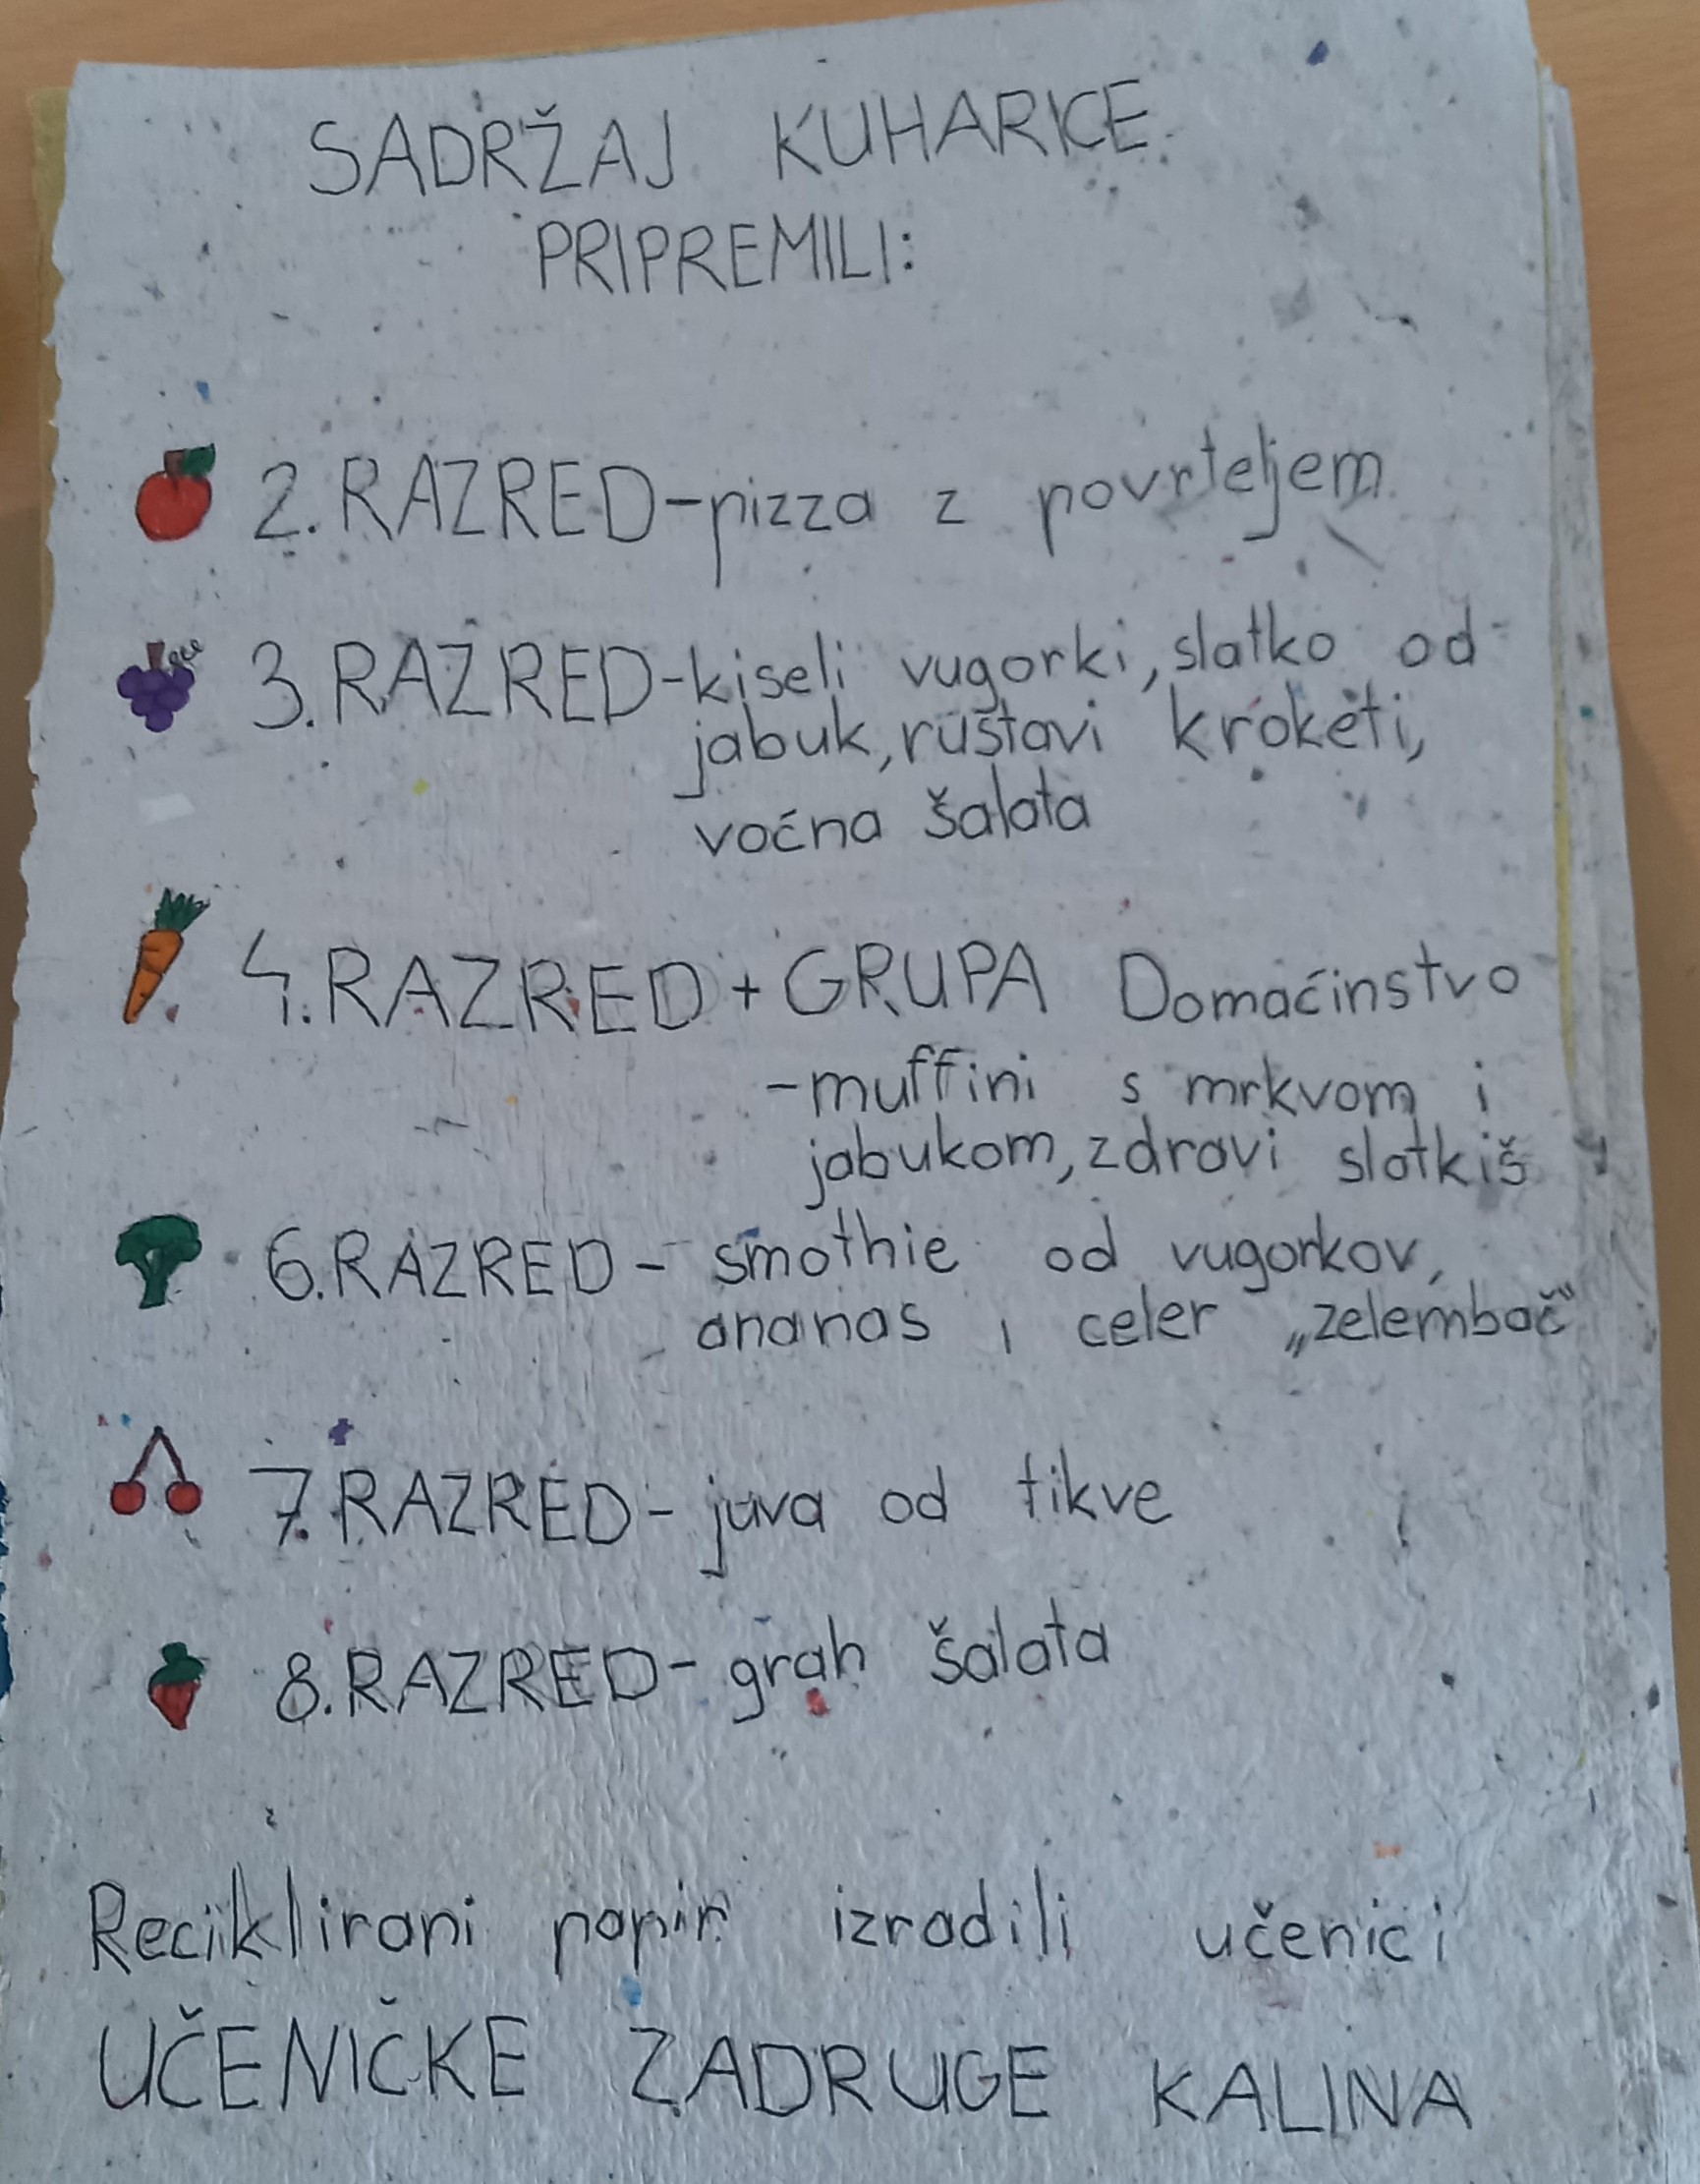 SADRŽAJ KUHARICE
PRIPREMILI:
2. RAZRED-pizza z povrteljem
3. RAZRED-kiseli vugorki, slatko od
jabuk, ruštavi kroketi,
voćna šalata
4. RAZRED + GRUPA Domaćinstvo
-muffini s mrkvom i
jabukom, zdravi slatkiš
6. RAZRED - smothie od vugorkov,
ananas i celer „zelembač“
7. RAZRED - juva od tikve
8. RAZRED - grah šalata
Reciklirani papir izradili učenici
UČENIČKE ZADRUGE KALINA